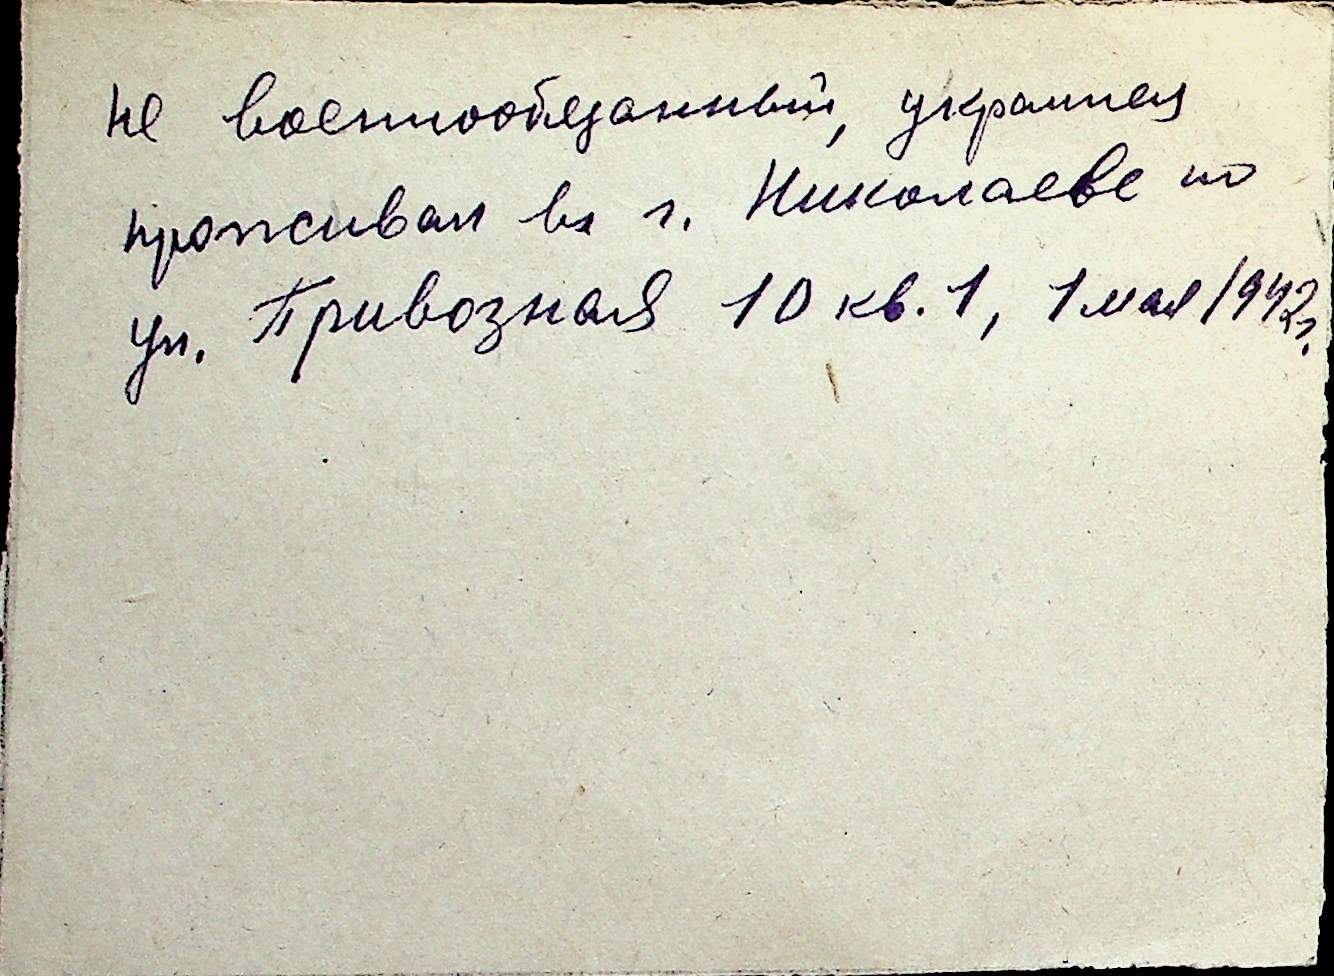 не военнообязанный, украинец
проживал в г. Николаеве по
ул. Привозная 10 кв. 1, 1 мая 1942 г.